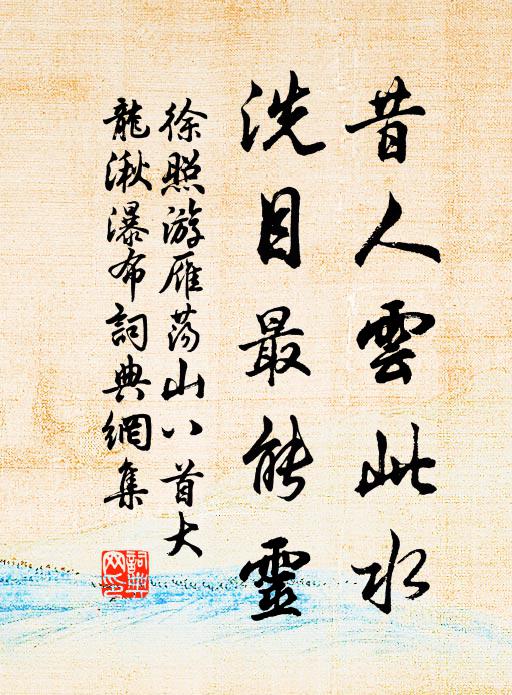 昔人雲此水
洗目最能靈
徐照游雁蕩山八首大
龍湫瀑布詞典網集